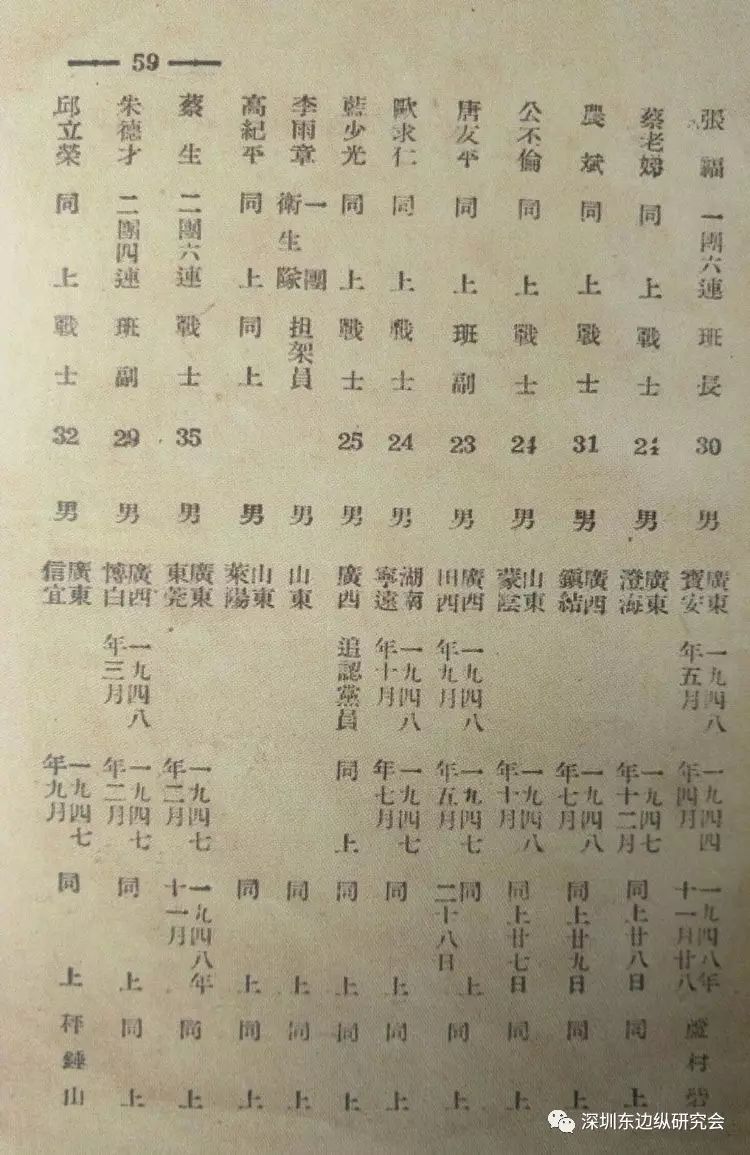 59
張福 一團六連 班長 30 男 廣東寶安 一九四八年五月 一九四四年四月 一九四八年十一月廿八 蘆村
蔡老娣 同上 戰士 24 男 廣東澄海 一九四七年十二月 同上廿八日 同上
農斌 同上 戰士 31 男 廣西鎮結 一九四八年七月 同上廿九日 同上
公丕倫 同上 戰士 24 男 山東蒙陰 一九四八年十月 同上廿七日 同上
唐友平 同上 班副 23 男 廣西田西 一九四八年九月 一九四七年五月 同上二十八日 同上
歐求仁 同上 戰士 24 男 湖南寧遠 一九四八年十月 一九四七年七月 同上 同上
藍少光 同上 戰士 25 男 廣西 追認黨員 同上 同上 同上
李雨章 一團衛生隊 担架員 男 山東 同上 同上
高紀平 同上 同上 男 山東萊陽 同上 同上
蔡生 二團六連 戰士 35 男 廣東東莞 一九四七年二月 一九四八年十一月 同上
朱德才 二團四連 班副 29 男 廣西博白 一九四八年三月 一九四七年二月 同上 同上
邱立榮 同上 戰士 32 男 廣東信宜 一九四七年九月 同上 秤錘山
深圳东边纵研究会